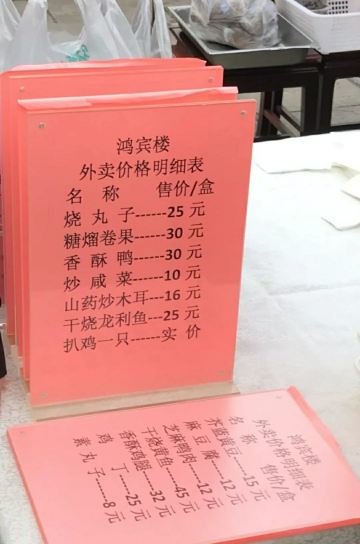 鸿宾楼
外卖价格明细表
名 称 售价/盒
烧 丸 子------25 元
糖熘卷果---30 元
香 酥 鸭---30 元
炒 咸 菜---10 元
山药炒木耳---16 元
干烧龙利鱼---25 元
扒鸡一只------实 价
鸿宾楼
外卖价格明细表
名 称 售价/盒
芥蓝黄豆---15 元
麻 豆 腐---12 元
芝麻鸭肉---12 元
干烧黄鱼---45 元
香酥鸡腿---32 元
鸡 丁---25 元
素 丸 子------8 元